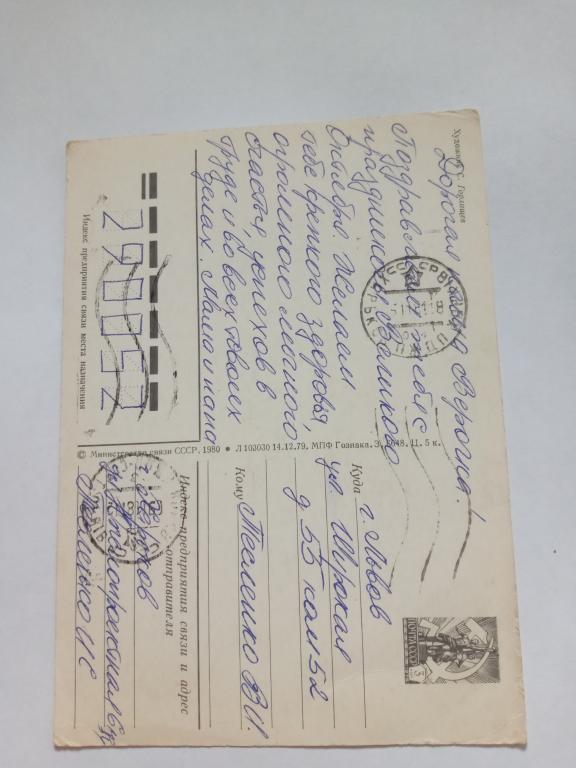 Художник С. Горлищев
Дорогая
Верочка!
Поздравляем тебя с
праздником Великого
Октября. Желаем
тебе крепкого здоровья,
огромного личного
счастья, успехов в
труде и во всех твоих
делах. Мама и папа
290052
Индекс предприятия связи места назначения
© Министерство связи СССР. 1980 • Л 103030 14.12.79. МПФ Гознака. З. 1648. Ц. 5 к.
ПОЧТА СССР
Куда г. Львов
ул. Широкая
д. 55 ком 52
Кому Тесленко В.И.
Индекс предприятия связи и адрес
отправителя
г. Харьков
Тесленко И.С